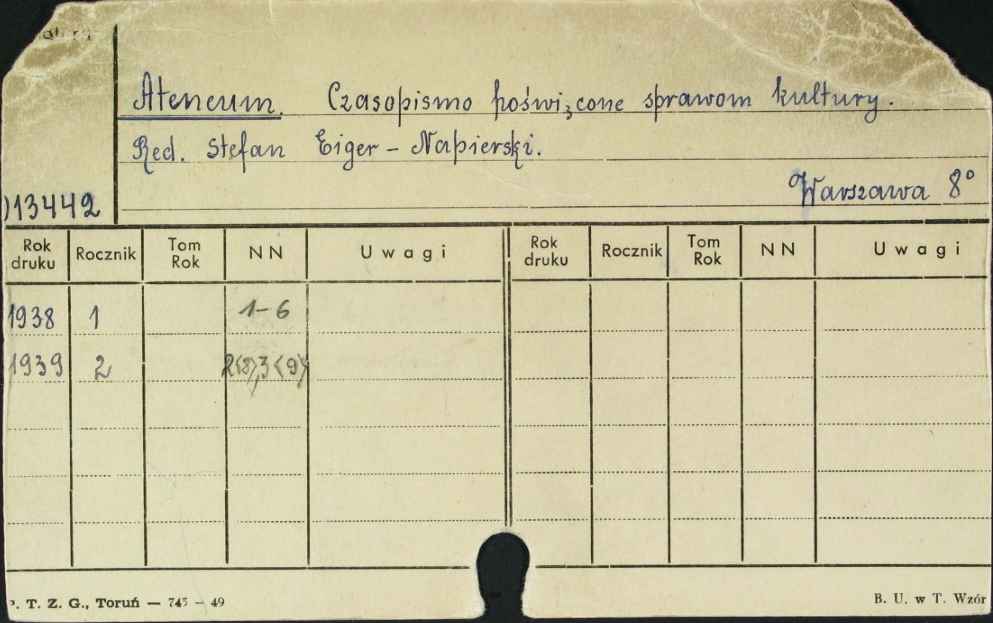 Ateneum. Czasopismo poświęcone sprawom kultury.
Red. Stefan Eiger - Napierski.
Warszawa 8°
013442
Rok druku Rocznik Tom Rok NN Uwagi Rok druku Rocznik Tom Rok NN Uwagi
1938 1 1-6
1939 2 2<8>,3<9>
P. T. Z. G., Toruń — 745 — 49
B. U. w T. Wzór